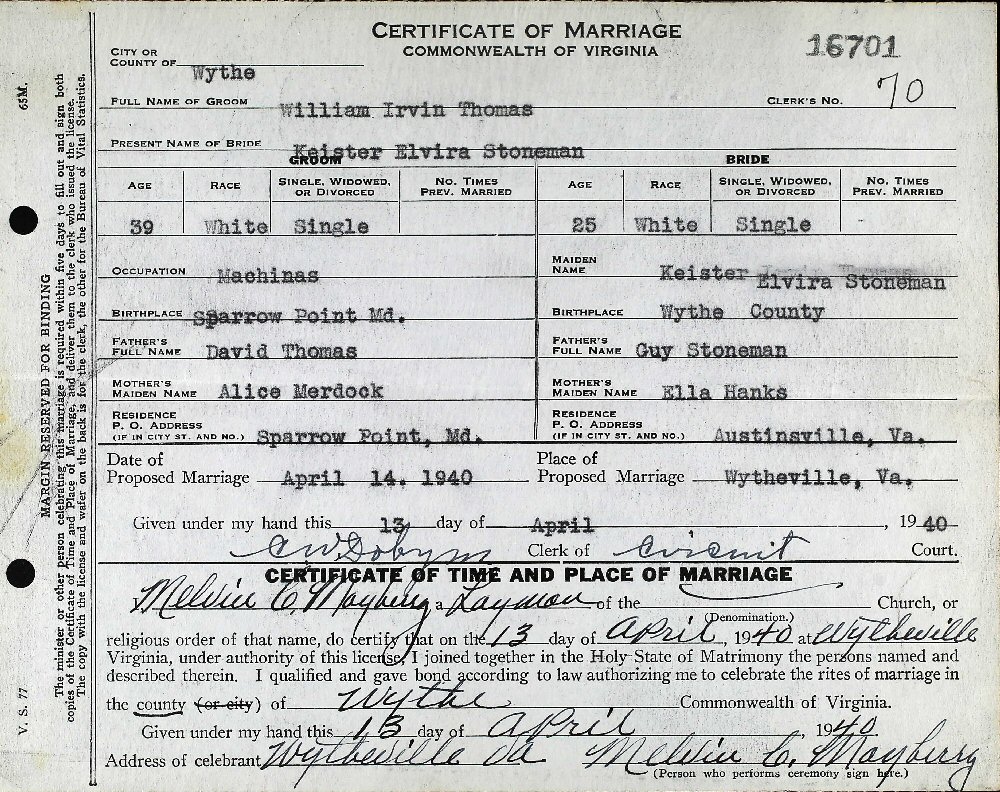 CERTIFICATE OF MARRIAGE
COMMONWEALTH OF VIRGINIA
16701
CITY OR
COUNTY OF Wythe
FULL NAME OF GROOM William Irvin Thomas CLERK'S NO. 70
PRESENT NAME OF BRIDE Keister Elvira Stoneman
GROOM BRIDE
AGE RACE SINGLE, WIDOWED, OR DIVORCED NO. TIMES PREV. MARRIED AGE RACE SINGLE, WIDOWED, OR DIVORCED NO. TIMES PREV. MARRIED
39 White Single 25 White Single
OCCUPATION Machinas MAIDEN NAME Keister Elvira Stoneman
BIRTHPLACE Sparrow Point Md. BIRTHPLACE Wythe County
FATHER'S FULL NAME David Thomas FATHER'S FULL NAME Guy Stoneman
MOTHER'S MAIDEN NAME Alice Merdock MOTHER'S MAIDEN NAME Ella Hanks
RESIDENCE P. O. ADDRESS (IF IN CITY ST. AND NO.) Sparrow Point, Md. RESIDENCE P. O. ADDRESS (IF IN CITY ST. AND NO.) Austinsville, Va.
Date of Proposed Marriage April 14. 1940 Place of Proposed Marriage Wytheville, Va.
Given under my hand this 13 day of April, 1940
C W Dobyns Clerk of Circuit Court.
CERTIFICATE OF TIME AND PLACE OF MARRIAGE
I, Melvin C. Mayberry a Laymon of the Church, or
(Denomination.)
religious order of that name, do certify that on the 13 day of April, 1940 at Wytheville
Virginia, under authority of this license, I joined together in the Holy State of Matrimony the persons named and
described therein. I qualified and gave bond according to law authorizing me to celebrate the rites of marriage in
the county (or city) of Wythe Commonwealth of Virginia.
Given under my hand this 13 day of April, 1940
Address of celebrant Wytheville Va Melvin C. Mayberry
(Person who performs ceremony sign here.)
65M.
MARGIN RESERVED FOR BINDING
The minister or other person celebrating this marriage is required within five days to fill out and sign both
copies of the Certificate of Time and Place of Marriage, and deliver them to the clerk who issued the license.
The copy with the license and wafer on the back is for the clerk, the other for the Bureau of Vital Statistics.
V. S. 77